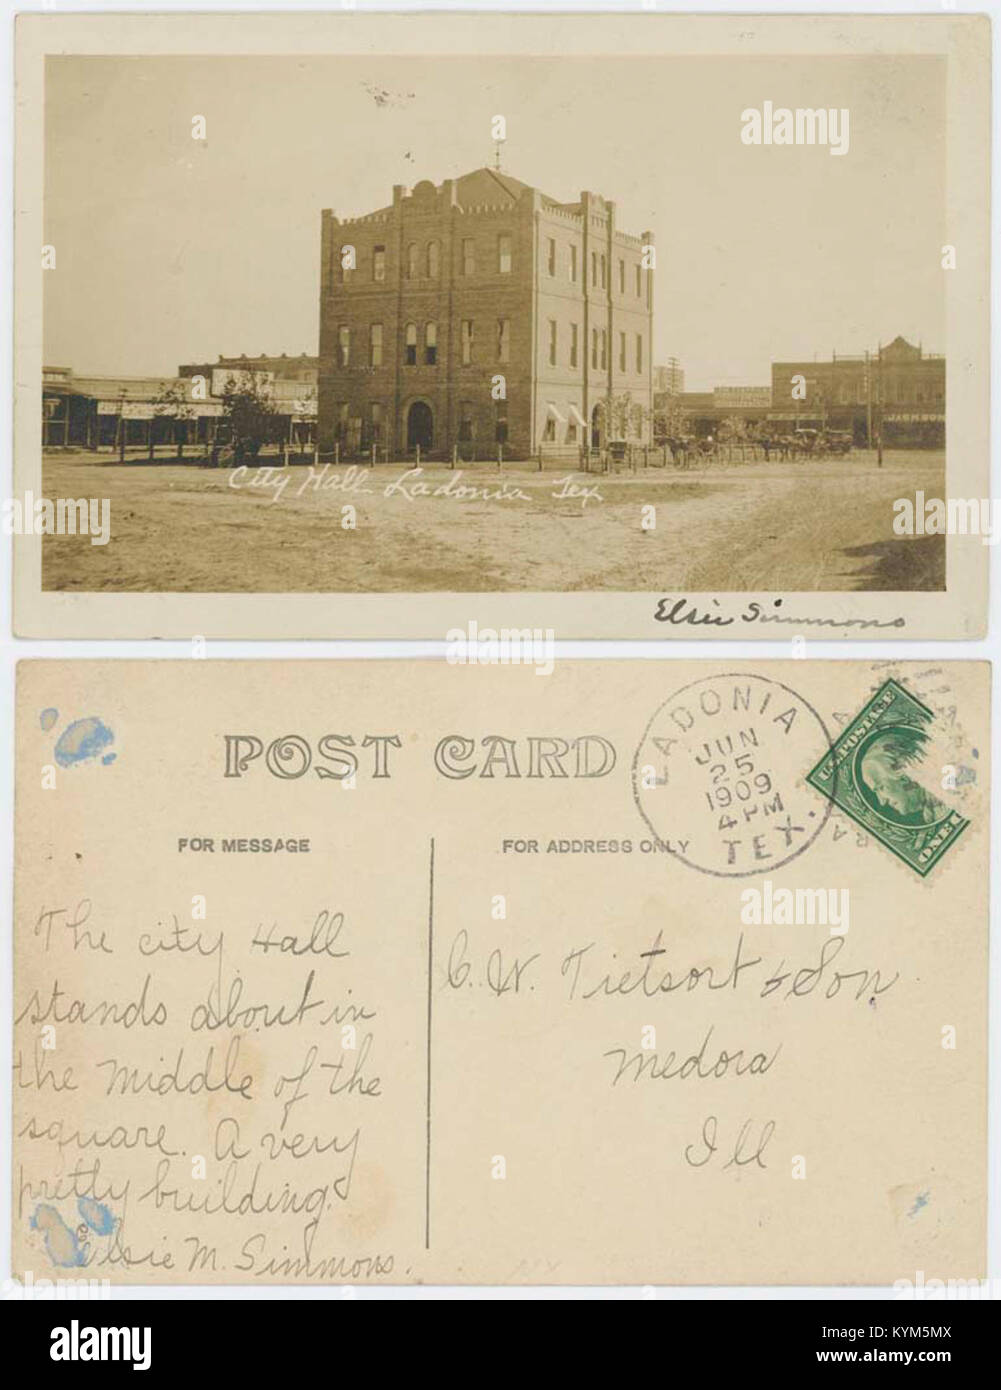 alamy
City Hall Ladonia Tex
JACKSON
Elsie Simmons
alamy
POST CARD
LADONIA
JUN
25
1909
4 PM
TEX.
U.S. POSTAGE
ONE CENT
FOR MESSAGE
FOR ADDRESS ONLY
The city Hall
stands about in
the middle of the
square. A very
pretty building.
Elsie M. Simmons.
C. W. Tietsort & Son
Medora
Ill
alamy
alamy
Image ID: KYM5MX
www.alamy.com